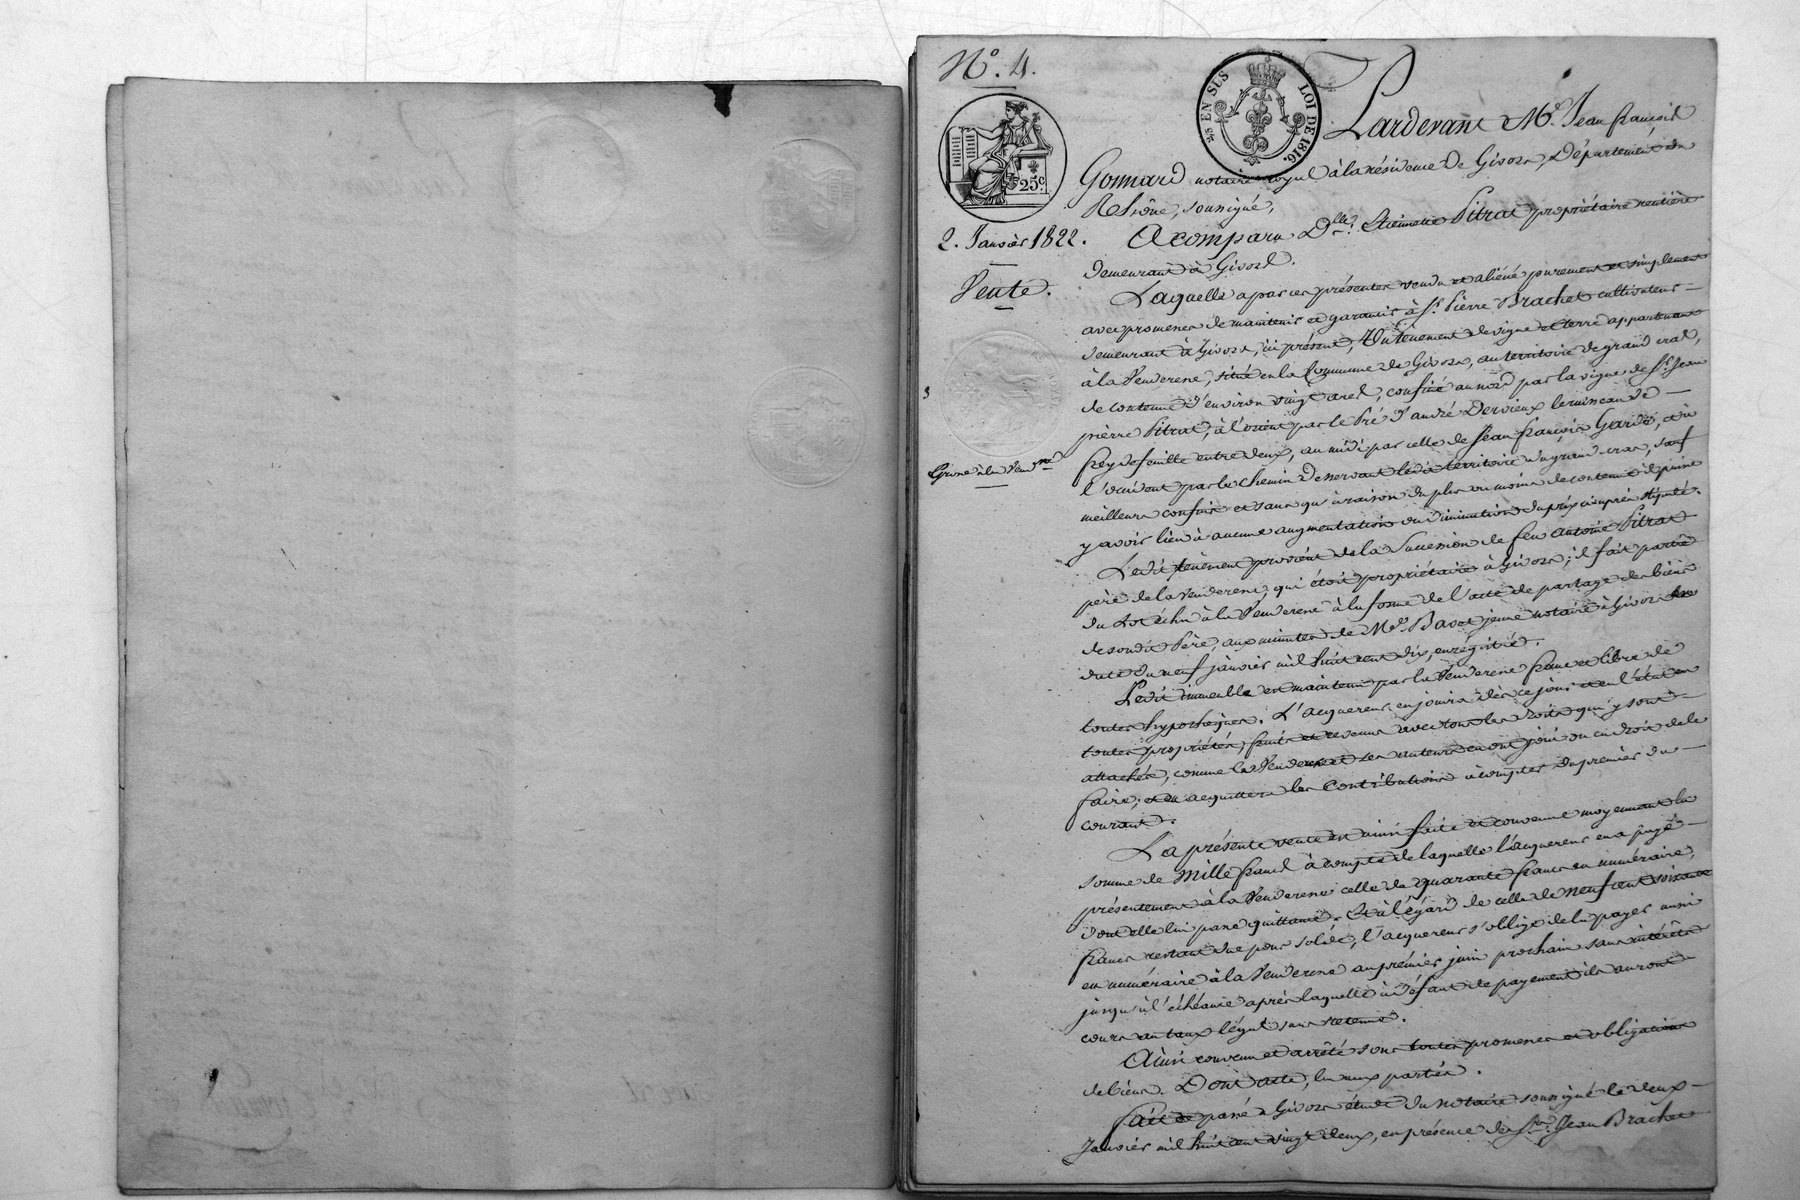 N.º 4.
¼ EN SUS LOI DE 1816.
25 c
2. Janvier 1822.
Vente.
Grosse à la Vend.se
Pardevant Me. Jean françois
Gonnard notaire royal à la résidence de Givors, Département du
Rhône, soussigné,
A comparu Dlle. Etiennette Pitrat propriétaire rentière
demeurant à Givors.
Laquelle a par ces présentes vendu et aliéné purement et simplement
avec promesse de maintenir et garantir à Sr. Pierre Brachet cultivateur
demeurant à Givors, ici présent, Un tènement de vigne et terre appartenant
à la Venderesse, situé en la Commune de Givors, au territoire de grand cras,
de contenue d'environ vingt ares, confiné au nord par la vigne de Sr. Jean
pierre Pitrat, à l'orient par le Pré d'andré Dervieux le ruisseau de
Rey de feuille entre deux, au midi par celle de Jean françois Garde, et à
l'occident par le chemin desservant ledit territoire du grand cras, sauf
meilleurs confins et sans qu'à raison du plus ou moins de contenue il puisse
y avoir lieu à aucune augmentation ou diminution du prix ci-après stipulé.
Ledit tènement provient de la Succession de feu antoine Pitrat
père de la Venderesse, qui étoit propriétaire à Givors; il fait partie
du Lot échu à la Venderesse à la forme de l'acte de partage des biens
de sondit Père, aux minutes de Me. Basset jeune notaire à Givors en
date du neuf janvier mil huit cent dix, enrégistré.
Ledit immeuble est maintenu par la Venderesse franc et libre de
toutes hypothèques. L'acquereur en jouira dès ce jour et en l'état en
toutes propriétés, fruits et revenus avec tous les droits qui y sont
attachés, comme la Venderesse et ses auteurs en ont joui ou eu droit de le
faire, et en acquittera les Contributions à compter du premier du
courant.
La présente vente est ainsi faite et convenue moyennant la
somme de mille francs à compte de laquelle l'acquereur en a payé
présentement à la Venderesse celle de quarante francs en numéraire,
dont elle lui passe quittance. Et à l'égard de celle de neuf cent soixante
francs restant due pour solde, l'acquereur s'oblige de la payer aussi
en numéraire à la Venderesse au premier juin prochain sans intérêts
jusqu'à l'échéance après laquelle à défaut de payement ils auront
cours au taux légal sans retenue.
Ainsi convenu et arrêté sous toutes promesses et obligations
de biens. Dont acte, lu aux parties.
Fait et passé à Givors étude du notaire soussigné le deux
Janvier mil huit cent vingt deux, en présence de Srs. Jean Brachet